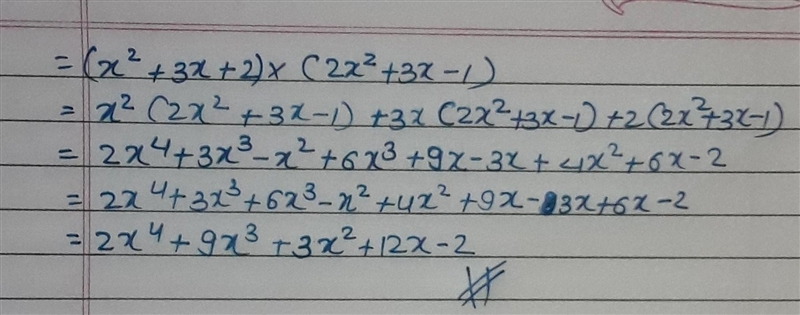 = (x² + 3x + 2) × (2x² + 3x - 1)
= x² (2x² + 3x - 1) + 3x (2x² + 3x - 1) + 2 (2x² + 3x - 1)
= 2x⁴ + 3x³ - x² + 6x³ + 9x - 3x + 4x² + 6x - 2
= 2x⁴ + 3x³ + 6x³ - x² + 4x² + 9x - 3x + 6x - 2
= 2x⁴ + 9x³ + 3x² + 12x - 2